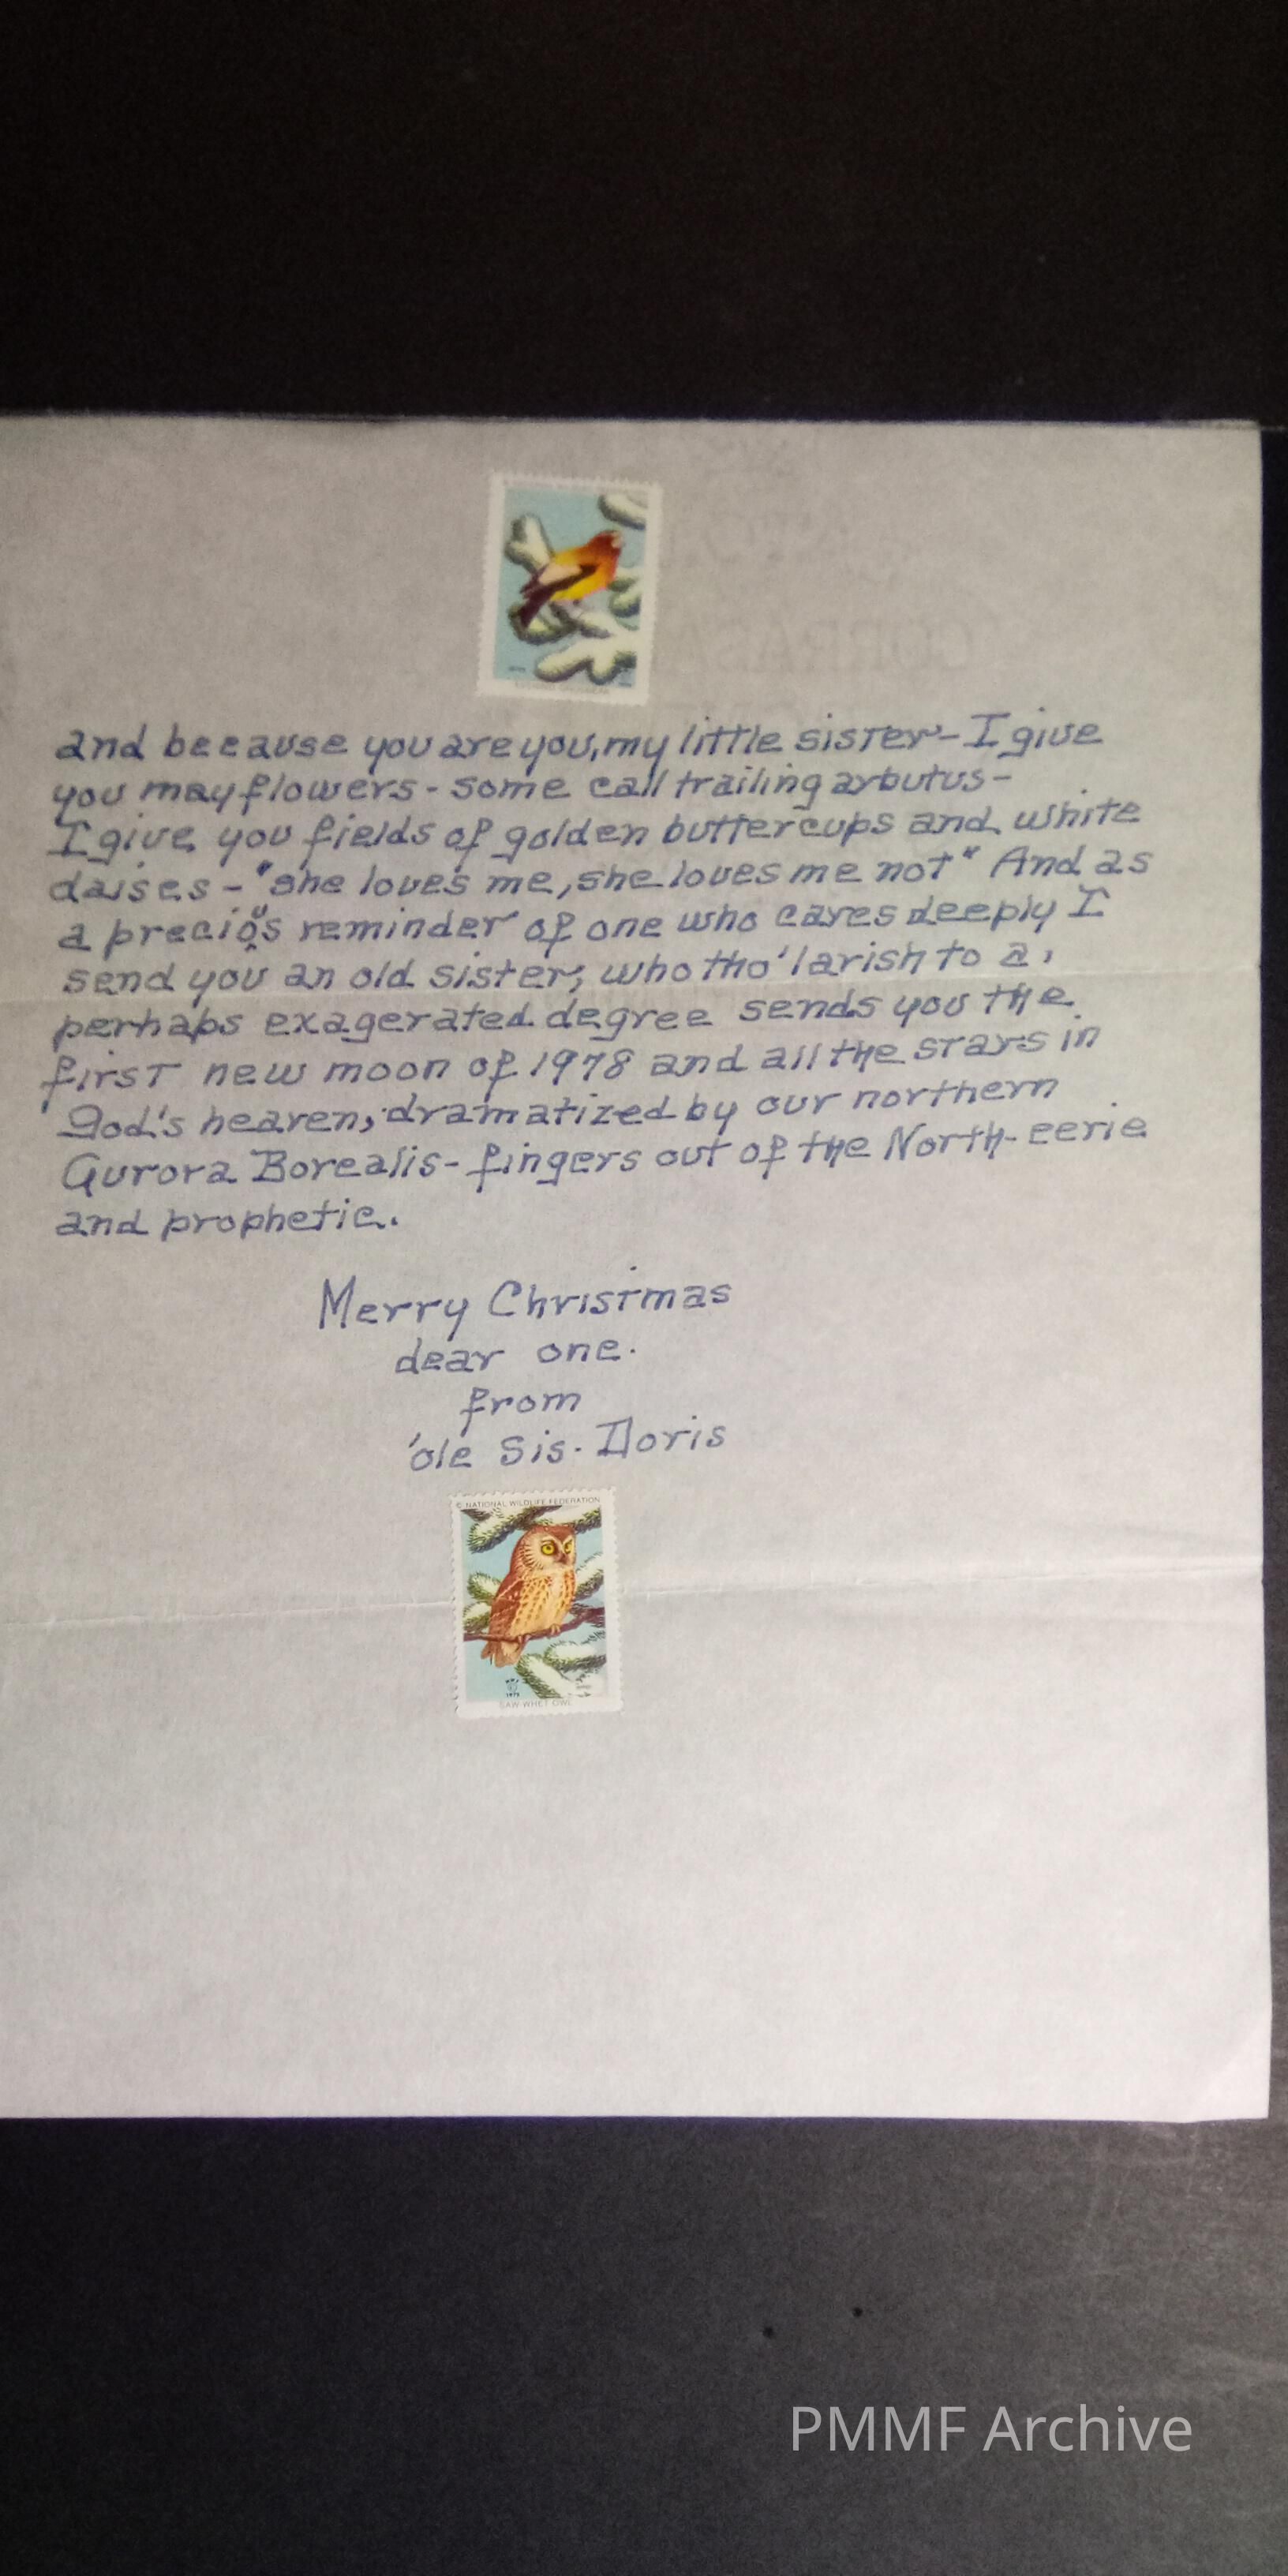 and because you are you, my little sister - I give
you mayflowers - some call trailing arbutus -
I give you fields of golden buttercups and white
daises - "she loves me, she loves me not" And as
a precious reminder of one who cares deeply I
send you an old sister, who tho' lavish to a,
perhaps exagerated degree sends you the
first new moon of 1978 and all the stars in
God's heaven, dramatized by our northern
Aurora Borealis - fingers out of the North - eerie
and prophetic.
Merry Christmas
dear one.
from
'ole Sis. Doris
© NATIONAL WILDLIFE FEDERATION
SAW-WHET OWL
PMMF Archive